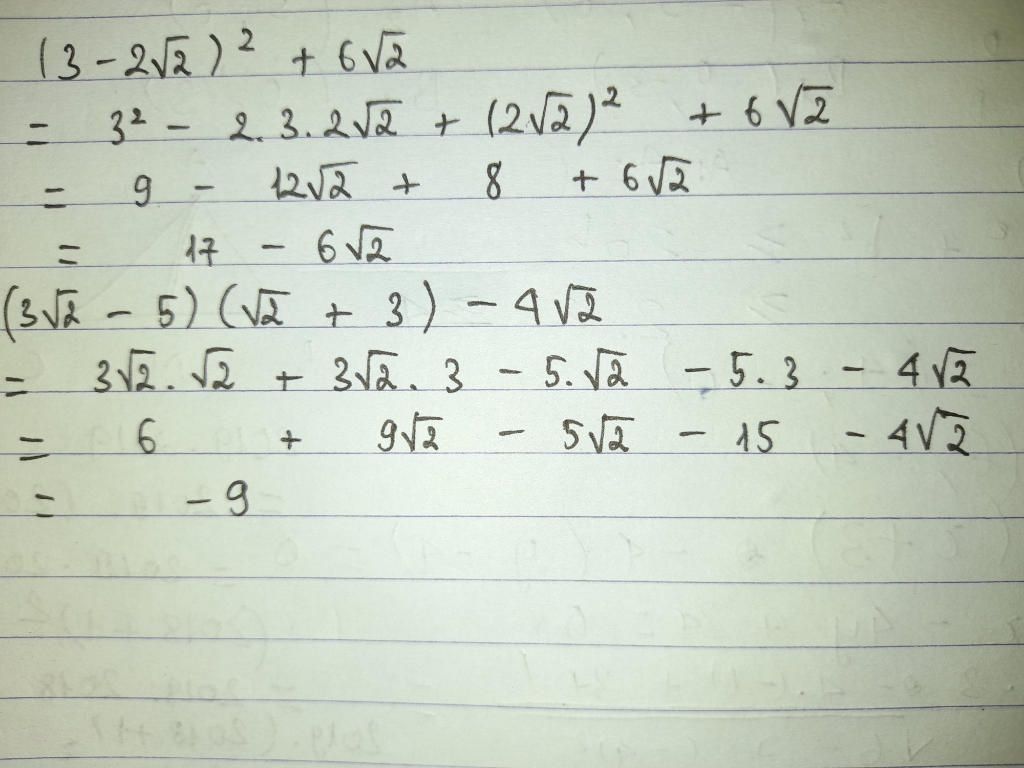 (3 - 2√2)² + 6√2
= 3² - 2.3.2√2 + (2√2)² + 6√2
= 9 - 12√2 + 8 + 6√2
= 17 - 6√2
(3√2 - 5)(√2 + 3) - 4√2
= 3√2.√2 + 3√2.3 - 5.√2 - 5.3 - 4√2
= 6 + 9√2 - 5√2 - 15 - 4√2
= -9